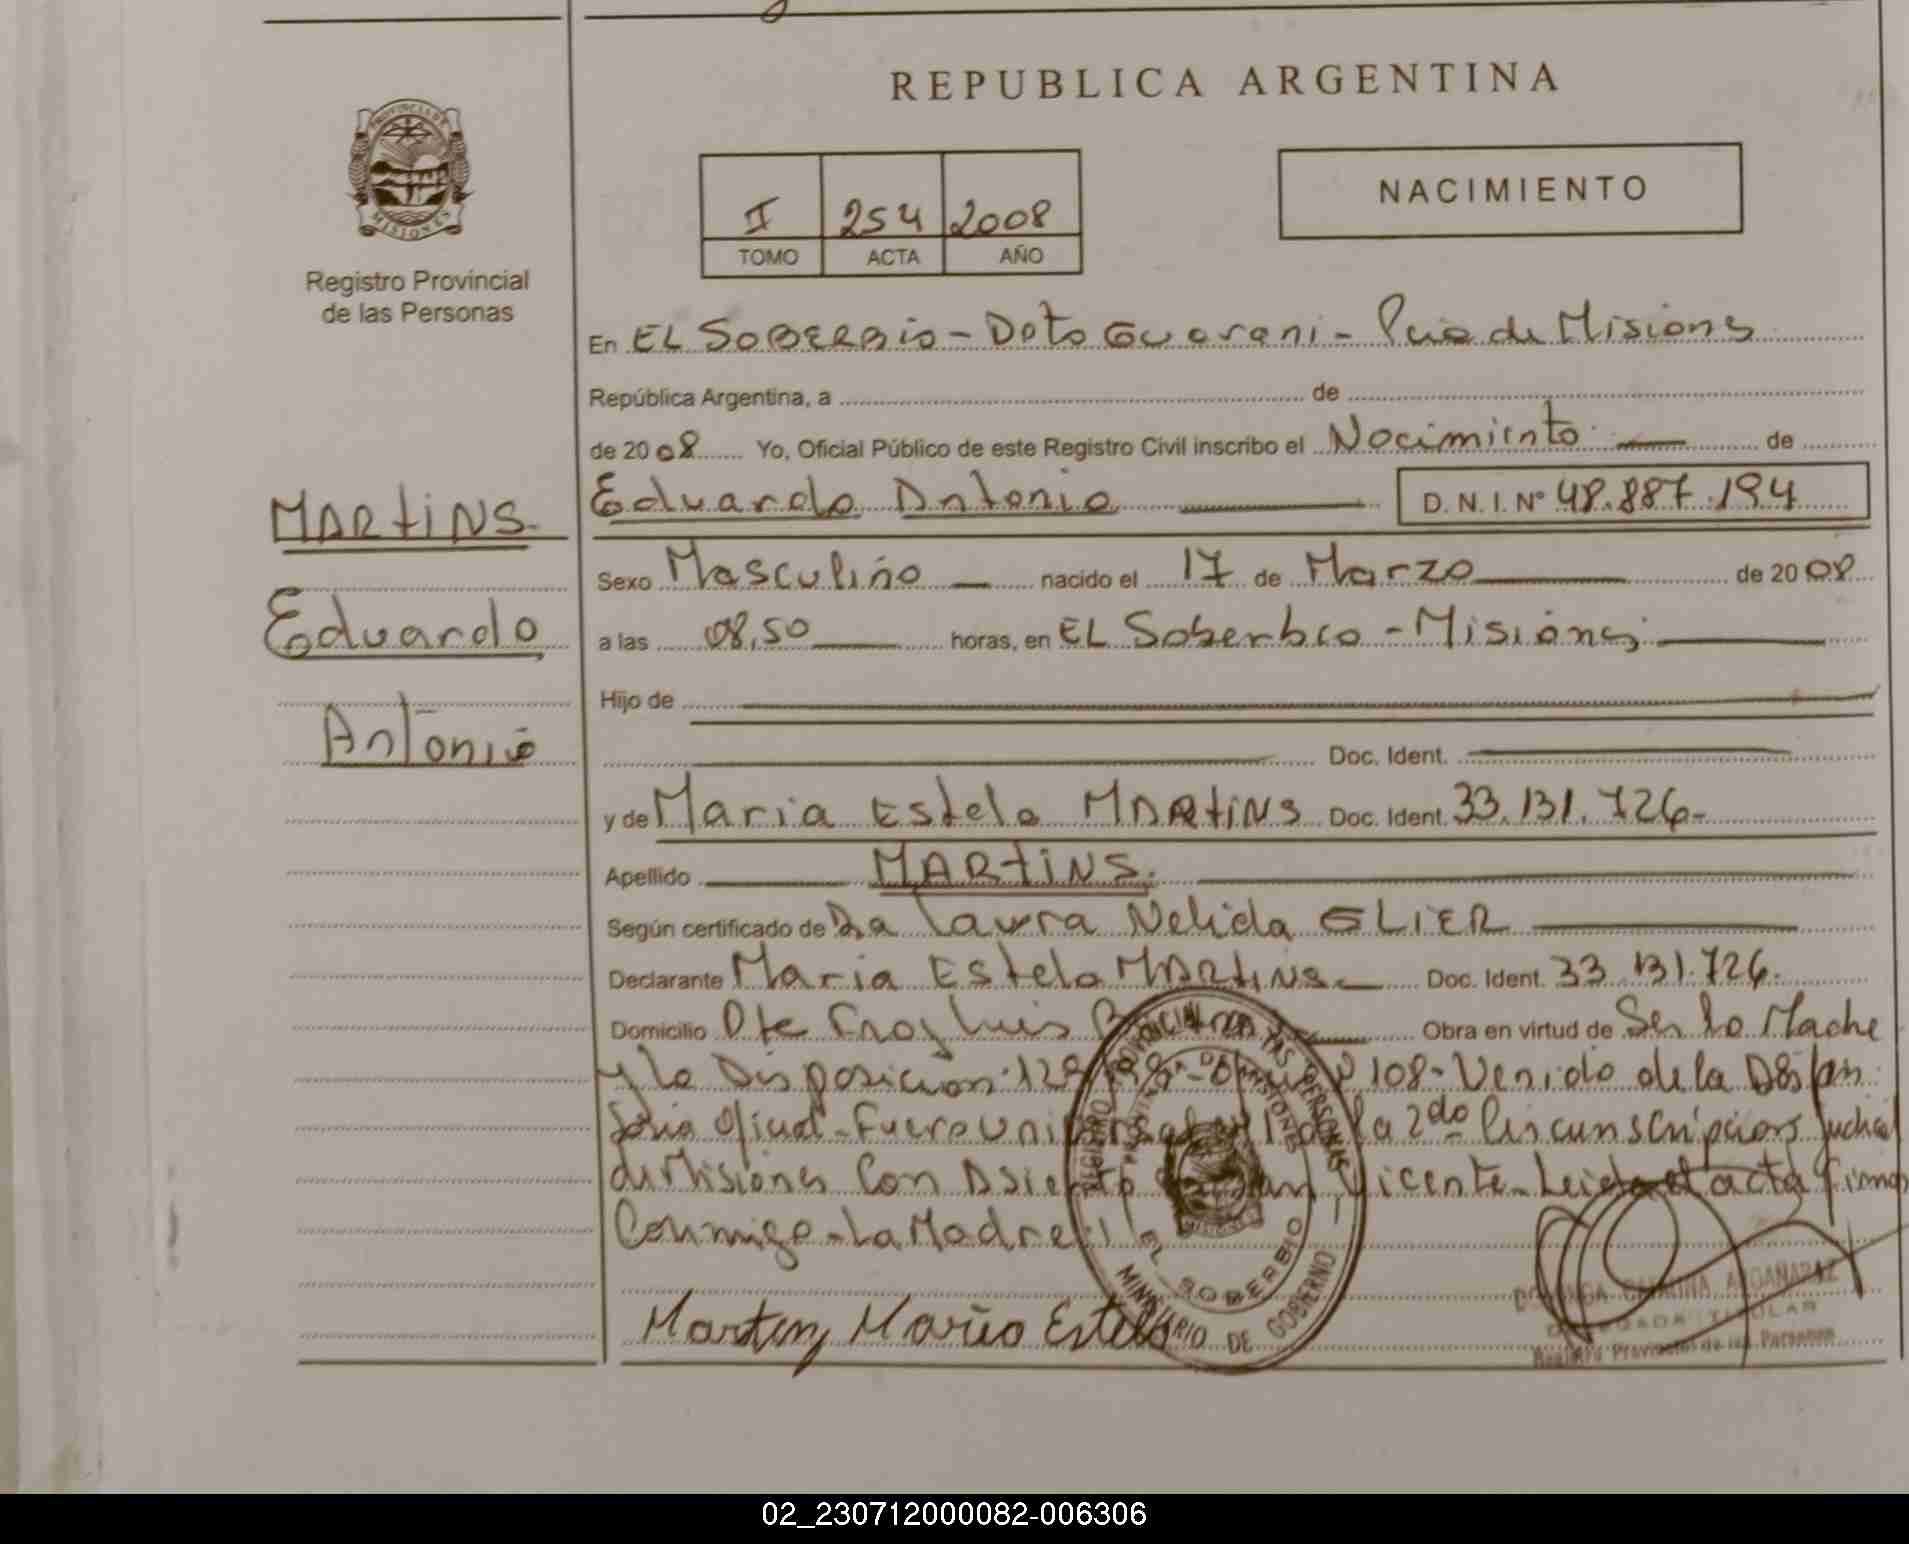 REPUBLICA ARGENTINA
PROVINCIA DE
MISIONES
Registro Provincial
de las Personas
NACIMIENTO
II 254 2008
TOMO ACTA AÑO
En EL SOBERBIO - Dpto Guarani - Pcia de Misiones
República Argentina, a de
de 2008 Yo, Oficial Público de este Registro Civil inscribo el Nacimiento de
MARTINS
Eduardo
Antonio
Eduardo Antonio D. N. I. Nº 48.887.194
Sexo Masculino nacido el 17 de Marzo de 2008
a las 08,50 horas, en EL Soberbio - Misiones
Hijo de
Doc. Ident.
y de Maria Estela MARTINS Doc. Ident. 33.131.726-
Apellido MARTINS.
Según certificado de Dra Laura Nelida GLIER
Declarante Maria Estela MARTINS Doc. Ident. 33.131.726.
Domicilio Pte Fray Luis Obra en virtud de Ser la Madre
y la Disposición 108 - Venido de la
Oficial - Fuero de la 2da Circunscripcion Judicial
de Misiones Con Asiento Vicente - Leida el acta firma
Conmigo - La Madre
Martins Maria Estela
REGISTRO PROVINCIAL DE LAS PERSONAS
EL SOBERBIO
MINISTERIO DE GOBIERNO
CARINA ARGAÑARAZ
DELEGADA TITULAR
Registro Provincial de las Personas
02_230712000082-006306